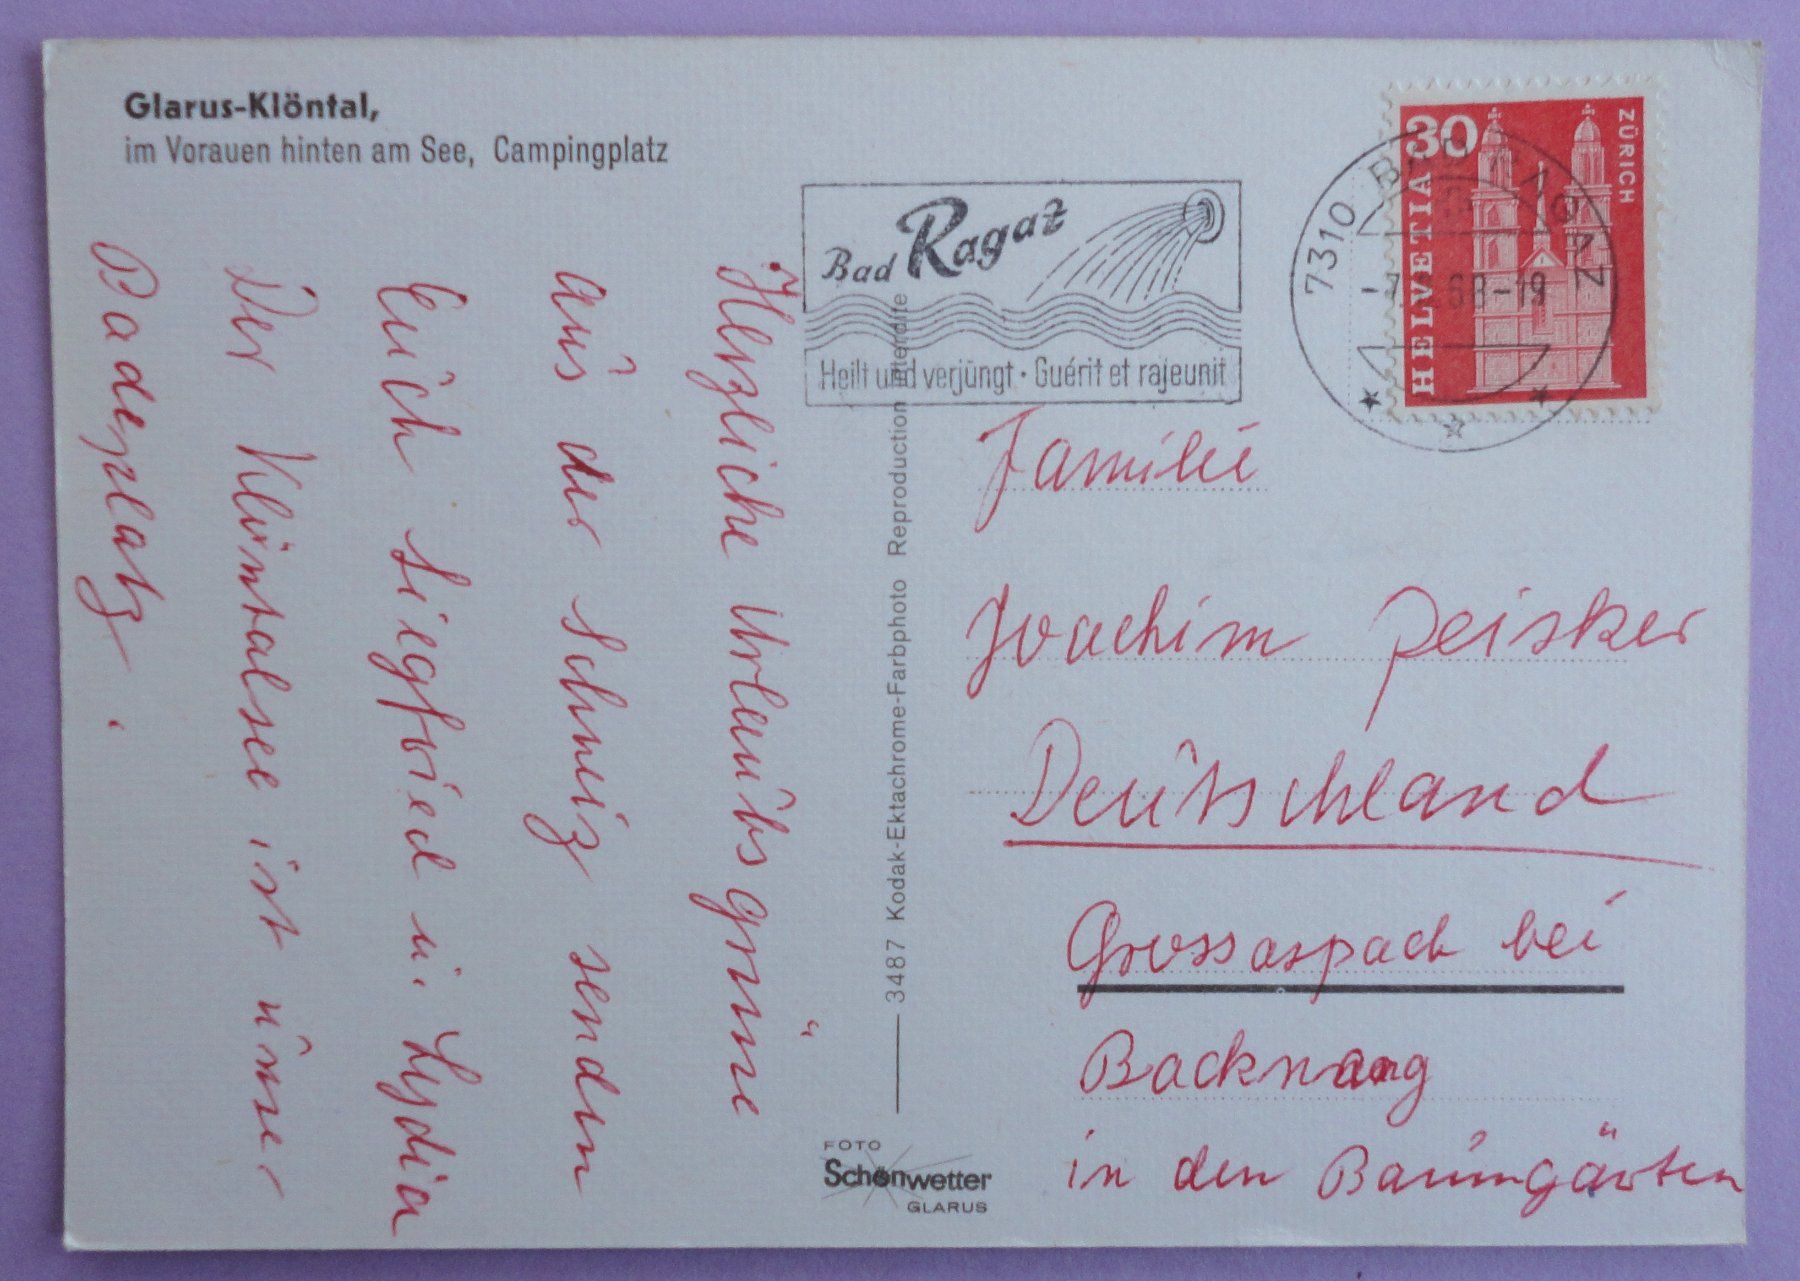 Glarus-Klöntal,
im Vorauen hinten am See, Campingplatz
Bad Ragaz
Heilt und verjüngt · Guérit et rajeunit
7310 BAD RAGAZ
68-19
30
HELVETIA
ZÜRICH
Herzliche Urlaubsgrüsse
aus der Schweiz senden
Euch Siegfried u. Lydia
Der Klöntalsee ist unser
Badeplatz.
3487 Kodak-Ektachrome-Farbphoto Reproduction interdite
FOTO
Schönwetter
GLARUS
Familie
Joachim Peisker
Deutschland
Grossaspach bei
Backnang
in den Baumgärten